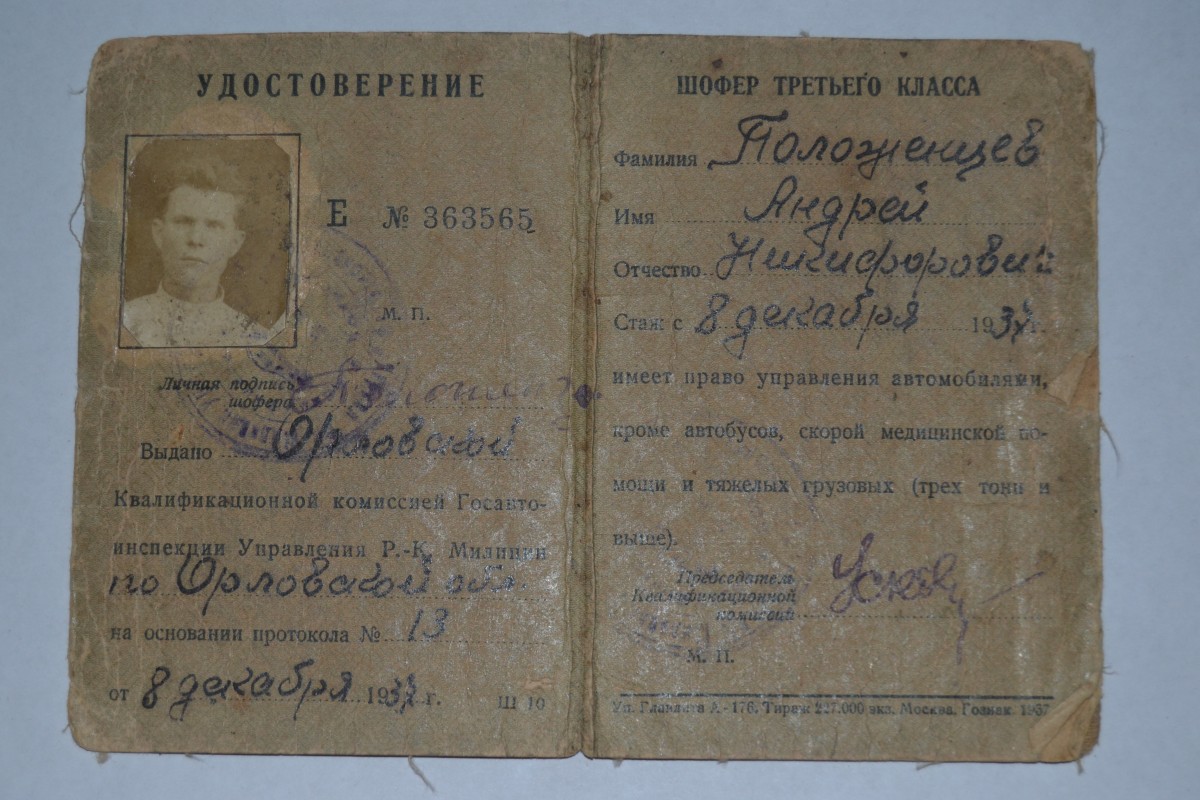 УДОСТОВЕРЕНИЕ
Е № 363565
М. П.
Личная подпись
шофера
Выдано Орловской
Квалификационной комиссией Госавто-
инспекции Управления Р.-К. Милиции
по Орловской обл.
на основании протокола № 13
от 8 декабря 193 г.
Ш 10
ШОФЕР ТРЕТЬЕГО КЛАССА
Фамилия Положенцев
Имя Андрей
Отчество Никифорович
Стаж с 8 декабря 193 г.
имеет право управления автомобилями,
кроме автобусов, скорой медицинской по-
мощи и тяжелых грузовых (трех тонн и
выше).
Председатель
Квалификационной
комиссии
М. П.
Уп. Главлита А-176. Тираж 227.000 экз. Москва. Гознак. 1937